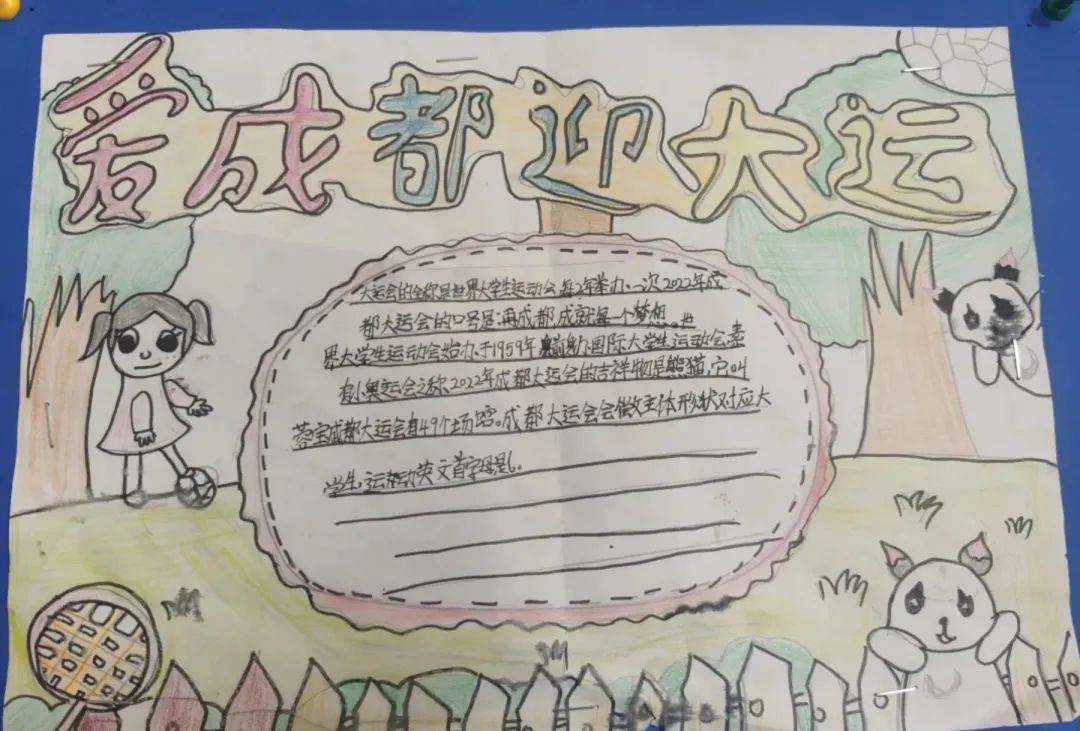 爱成都迎大运
大运会的全称是世界大学生运动会,每2年举办一次2022年成
都大运会的口号是:成都成就每一个梦想。世
界大学生运动会始办于1959年,前身为国际大学生运动会,素
有小奥运会之称,2022年成都大运会的吉祥物是熊猫,它叫
蓉宝成都大运会有49个场馆。成都大运会会徽主体形状对应大
学生运动英文首字母